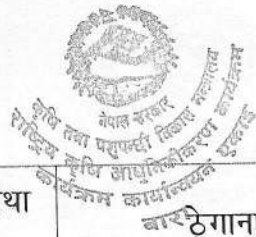 नेपाल सरकार
कृषि तथा पशुपन्छी विकास मन्त्रालय
राष्ट्रिय कृषि आधुनिकीकरण कार्यक्रम
कार्यक्रम कार्यान्वयन इकाइ
बारा
था
ठेगाना